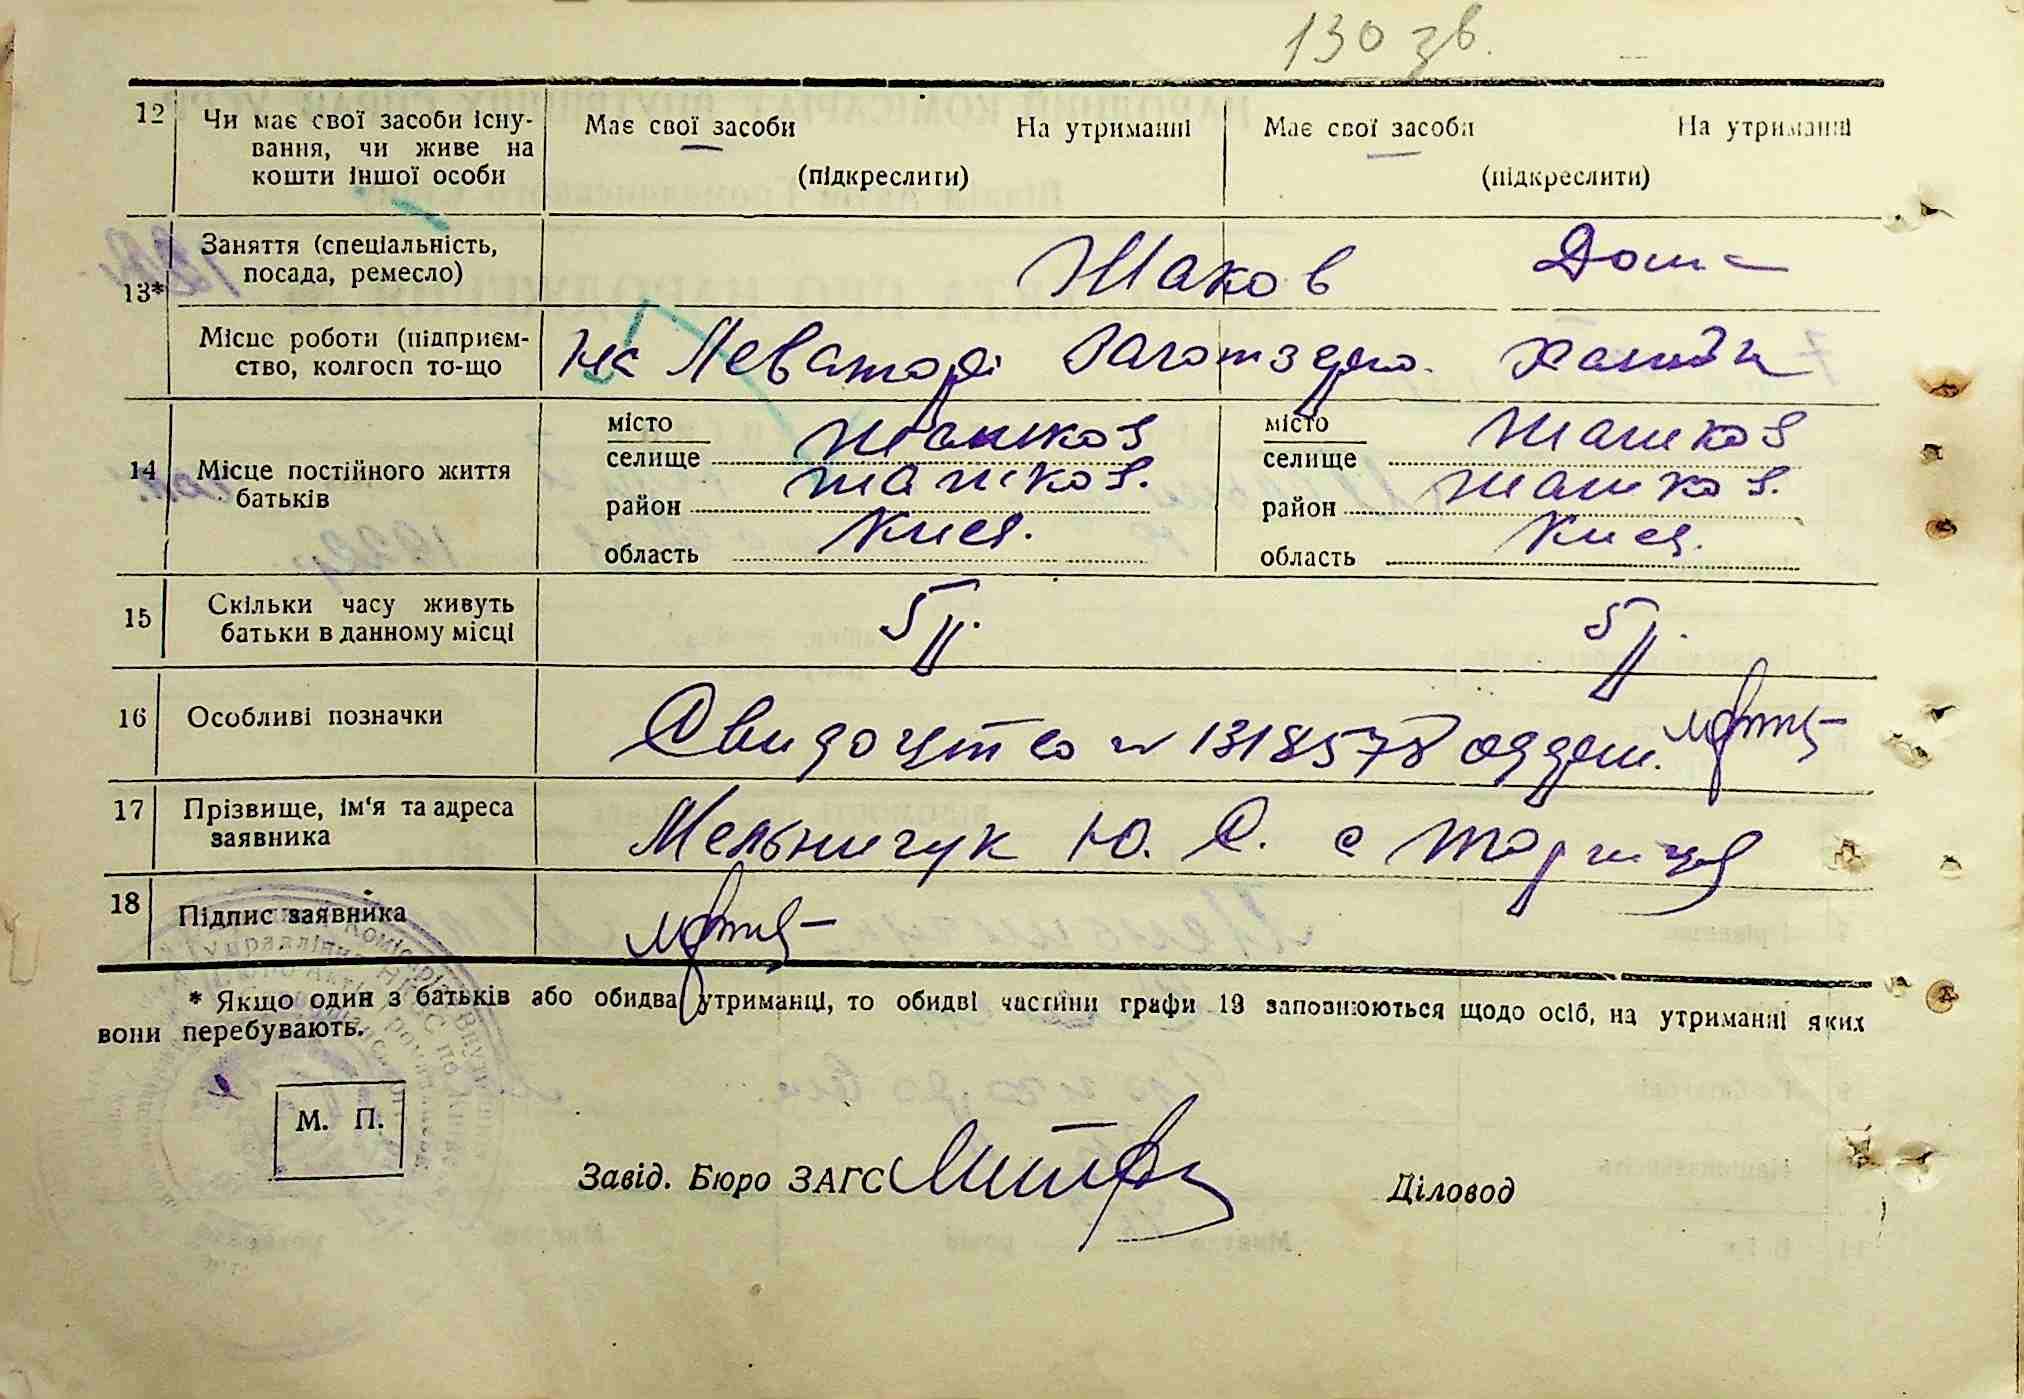 130 зв.
12 Чи має свої засоби існування, чи живе на кошти іншої особи
Має свої засоби На утриманні
(підкреслити)
Має свої засоби На утриманні
(підкреслити)
13*
Заняття (спеціальність,
посада, ремесло)
Місце роботи (підприєм-
ство, колгосп то-що
на Леваторі Заготзерно.
14 Місце постійного життя
батьків
місто
селище Жашков
район Жашков.
область Киев.
місто
селище Жашков
район Жашков.
область Киев.
15 Скільки часу живуть
батьки в данному місці
5 р. 5 р.
16 Особливі позначки
Свидоцтво № 1318578 одерж.
17 Прізвище, ім'я та адреса
заявника
Мельничук Ю. С. с Торчиця
18 Підпис заявника
* Якщо один з батьків або обидва утриманці, то обидві частини графи 13 заповнюються щодо осіб, на утриманні яких
вони перебувають.
М. П.
Завід. Бюро ЗАГС
Діловод